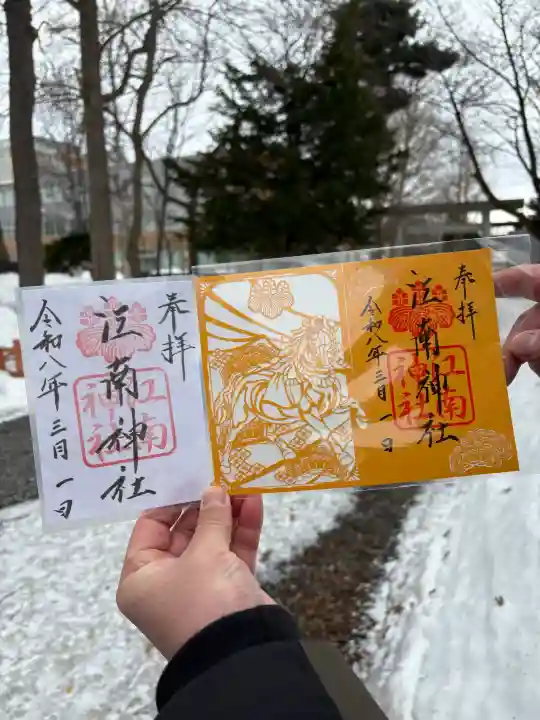 奉拝
江南神社
江南神社
令和八年三月一日
奉拝
江南神社
江南神社
令和八年三月一日